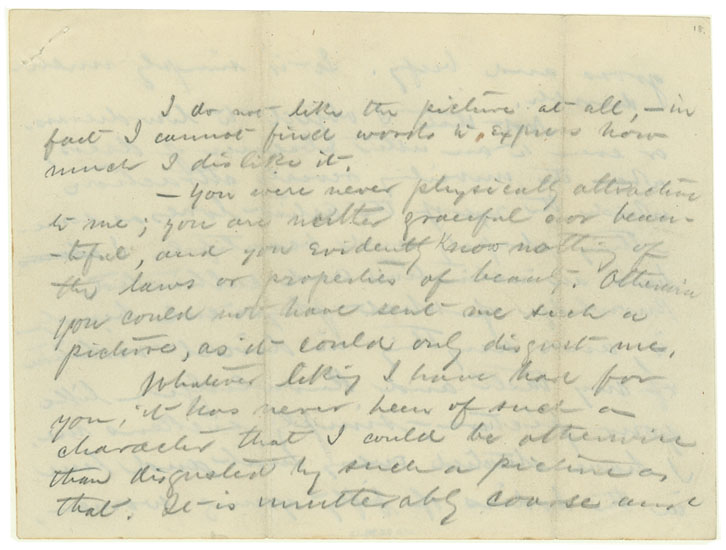 I do not like the picture at all, — in
fact I cannot find words to express how
much I dislike it.
— You were never physically attractive
to me; you are neither graceful nor beau-
-tiful, and you evidently know nothing of
the laws or properties of beauty. Otherwise
you could not have sent me such a
picture, as it could only disgust me.
Whatever liking I have had for
you, it has never been of such a
character that I could be otherwise
than disgusted by such a picture as
that. It is unutterably coarse and